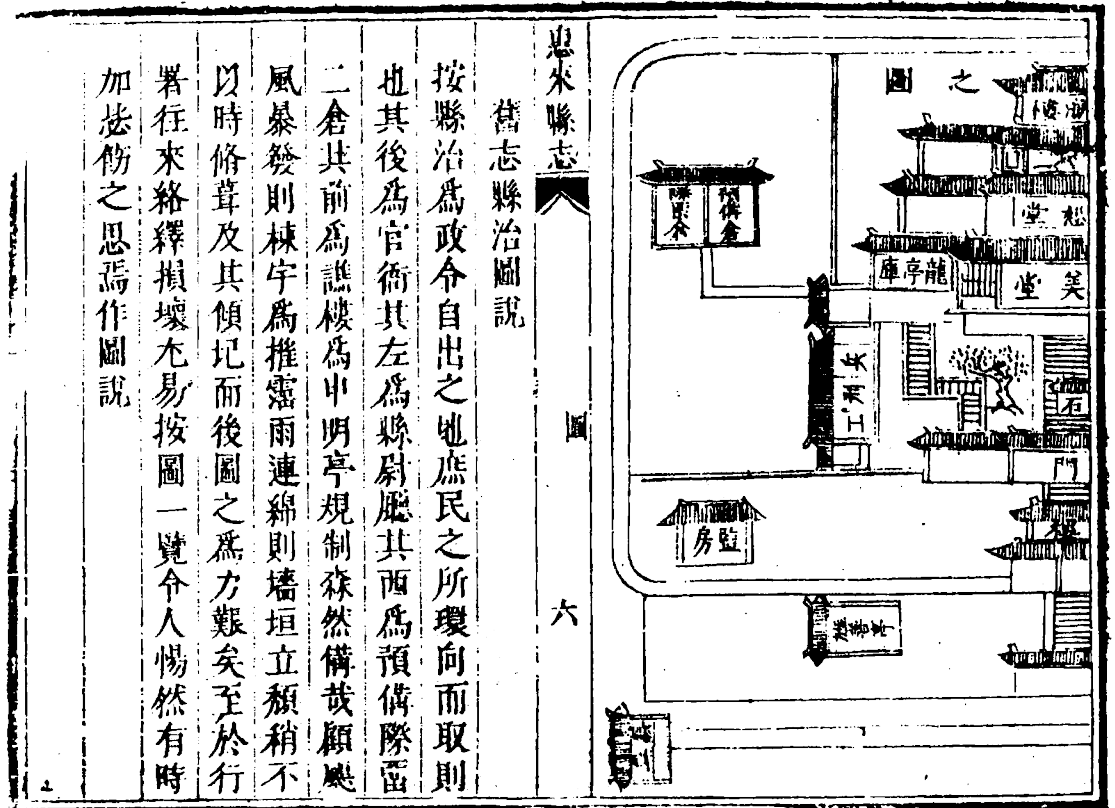 之圖
堂
堂
龍亭庫
預備倉
際留倉
兵刑工
石
門
監房
旌善亭
惠來縣志
圖
六
舊志縣治圖說
按縣治爲政令自出之地庶民之所環向而取則
也其後爲官衙其左爲縣尉廳其西爲預備際畱
二倉其前爲譙樓爲申明亭規制森然備哉顧颶
風暴發則棟宇爲摧霪雨連綿則墻垣立頹稍不
以時脩葺及其傾圮而後圖之爲力艱矣至於行
署往來絡繹損壞尤易按圖一覽令人惕然有時
加飭之思焉作圖說